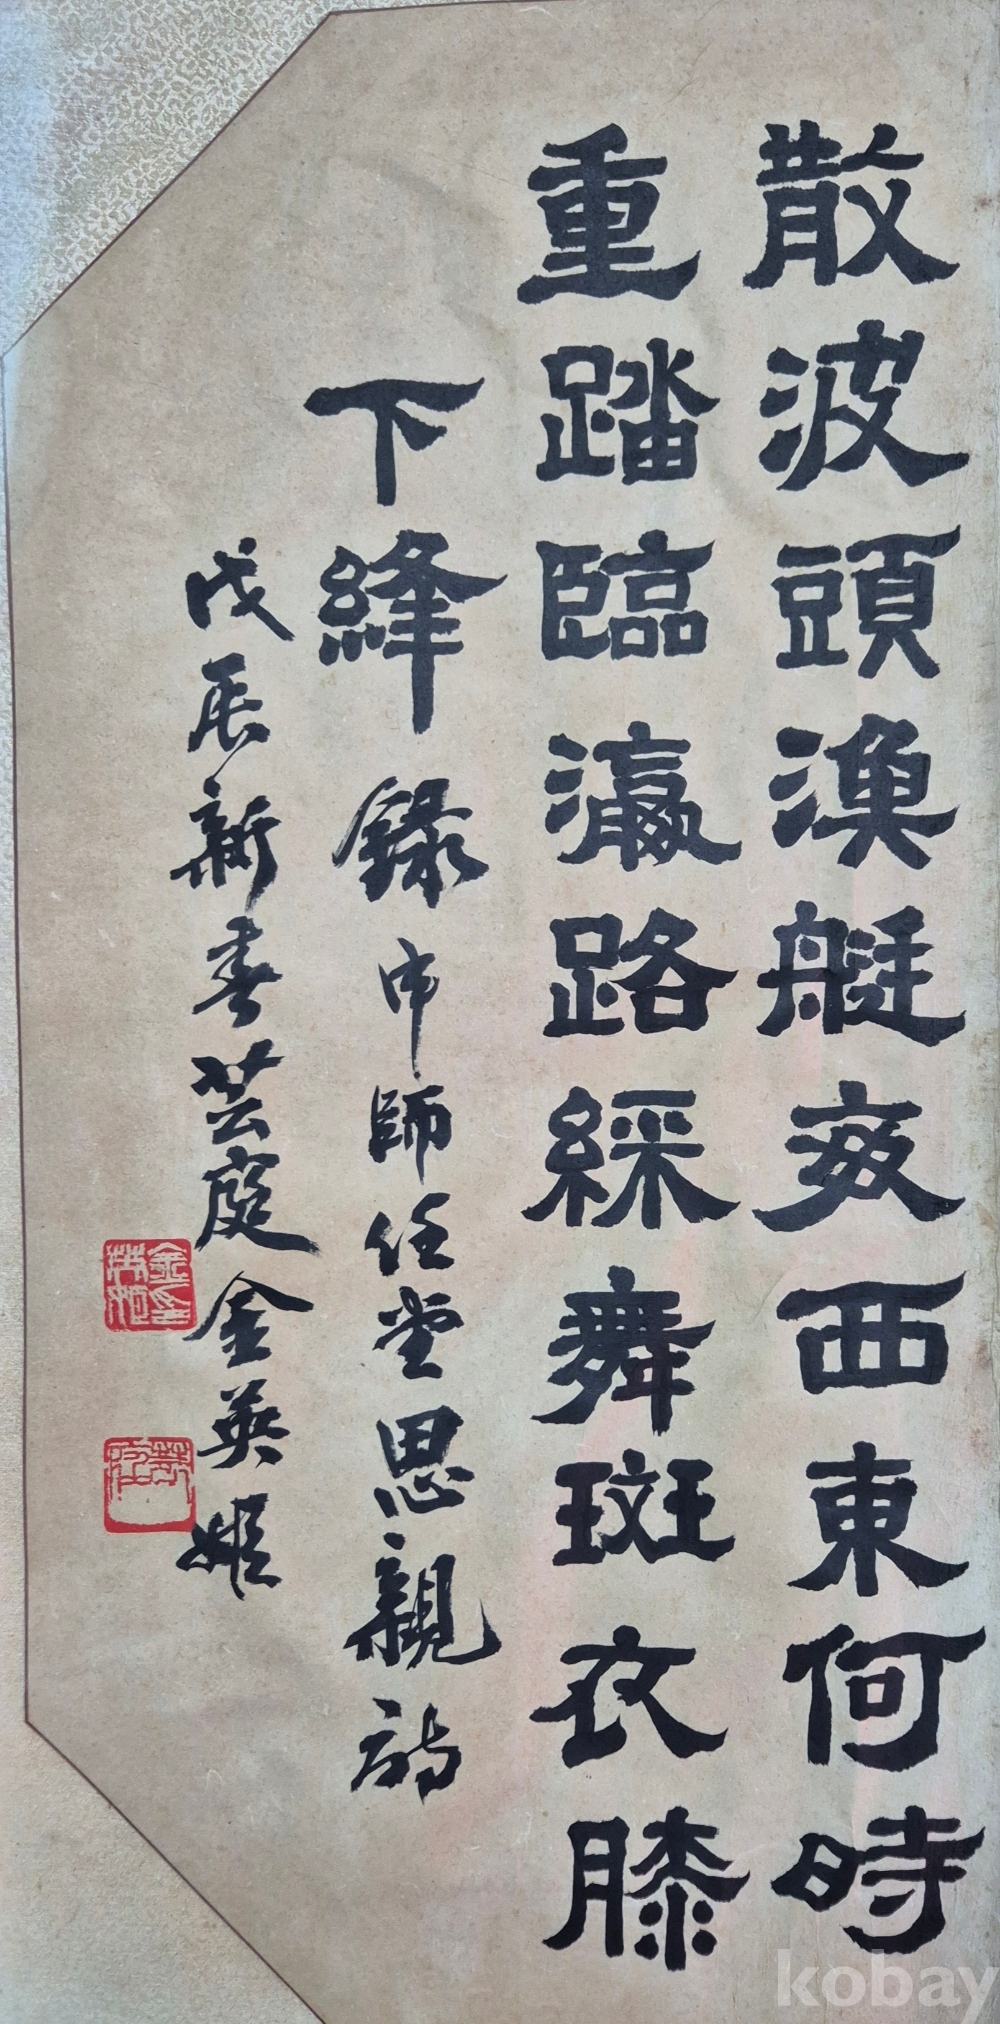 散波頭漁艇每西東何時
重踏臨瀛路綵舞斑衣膝
下縫 錄申師任堂思親詩
戊辰新春芸庭金英姬
kobay